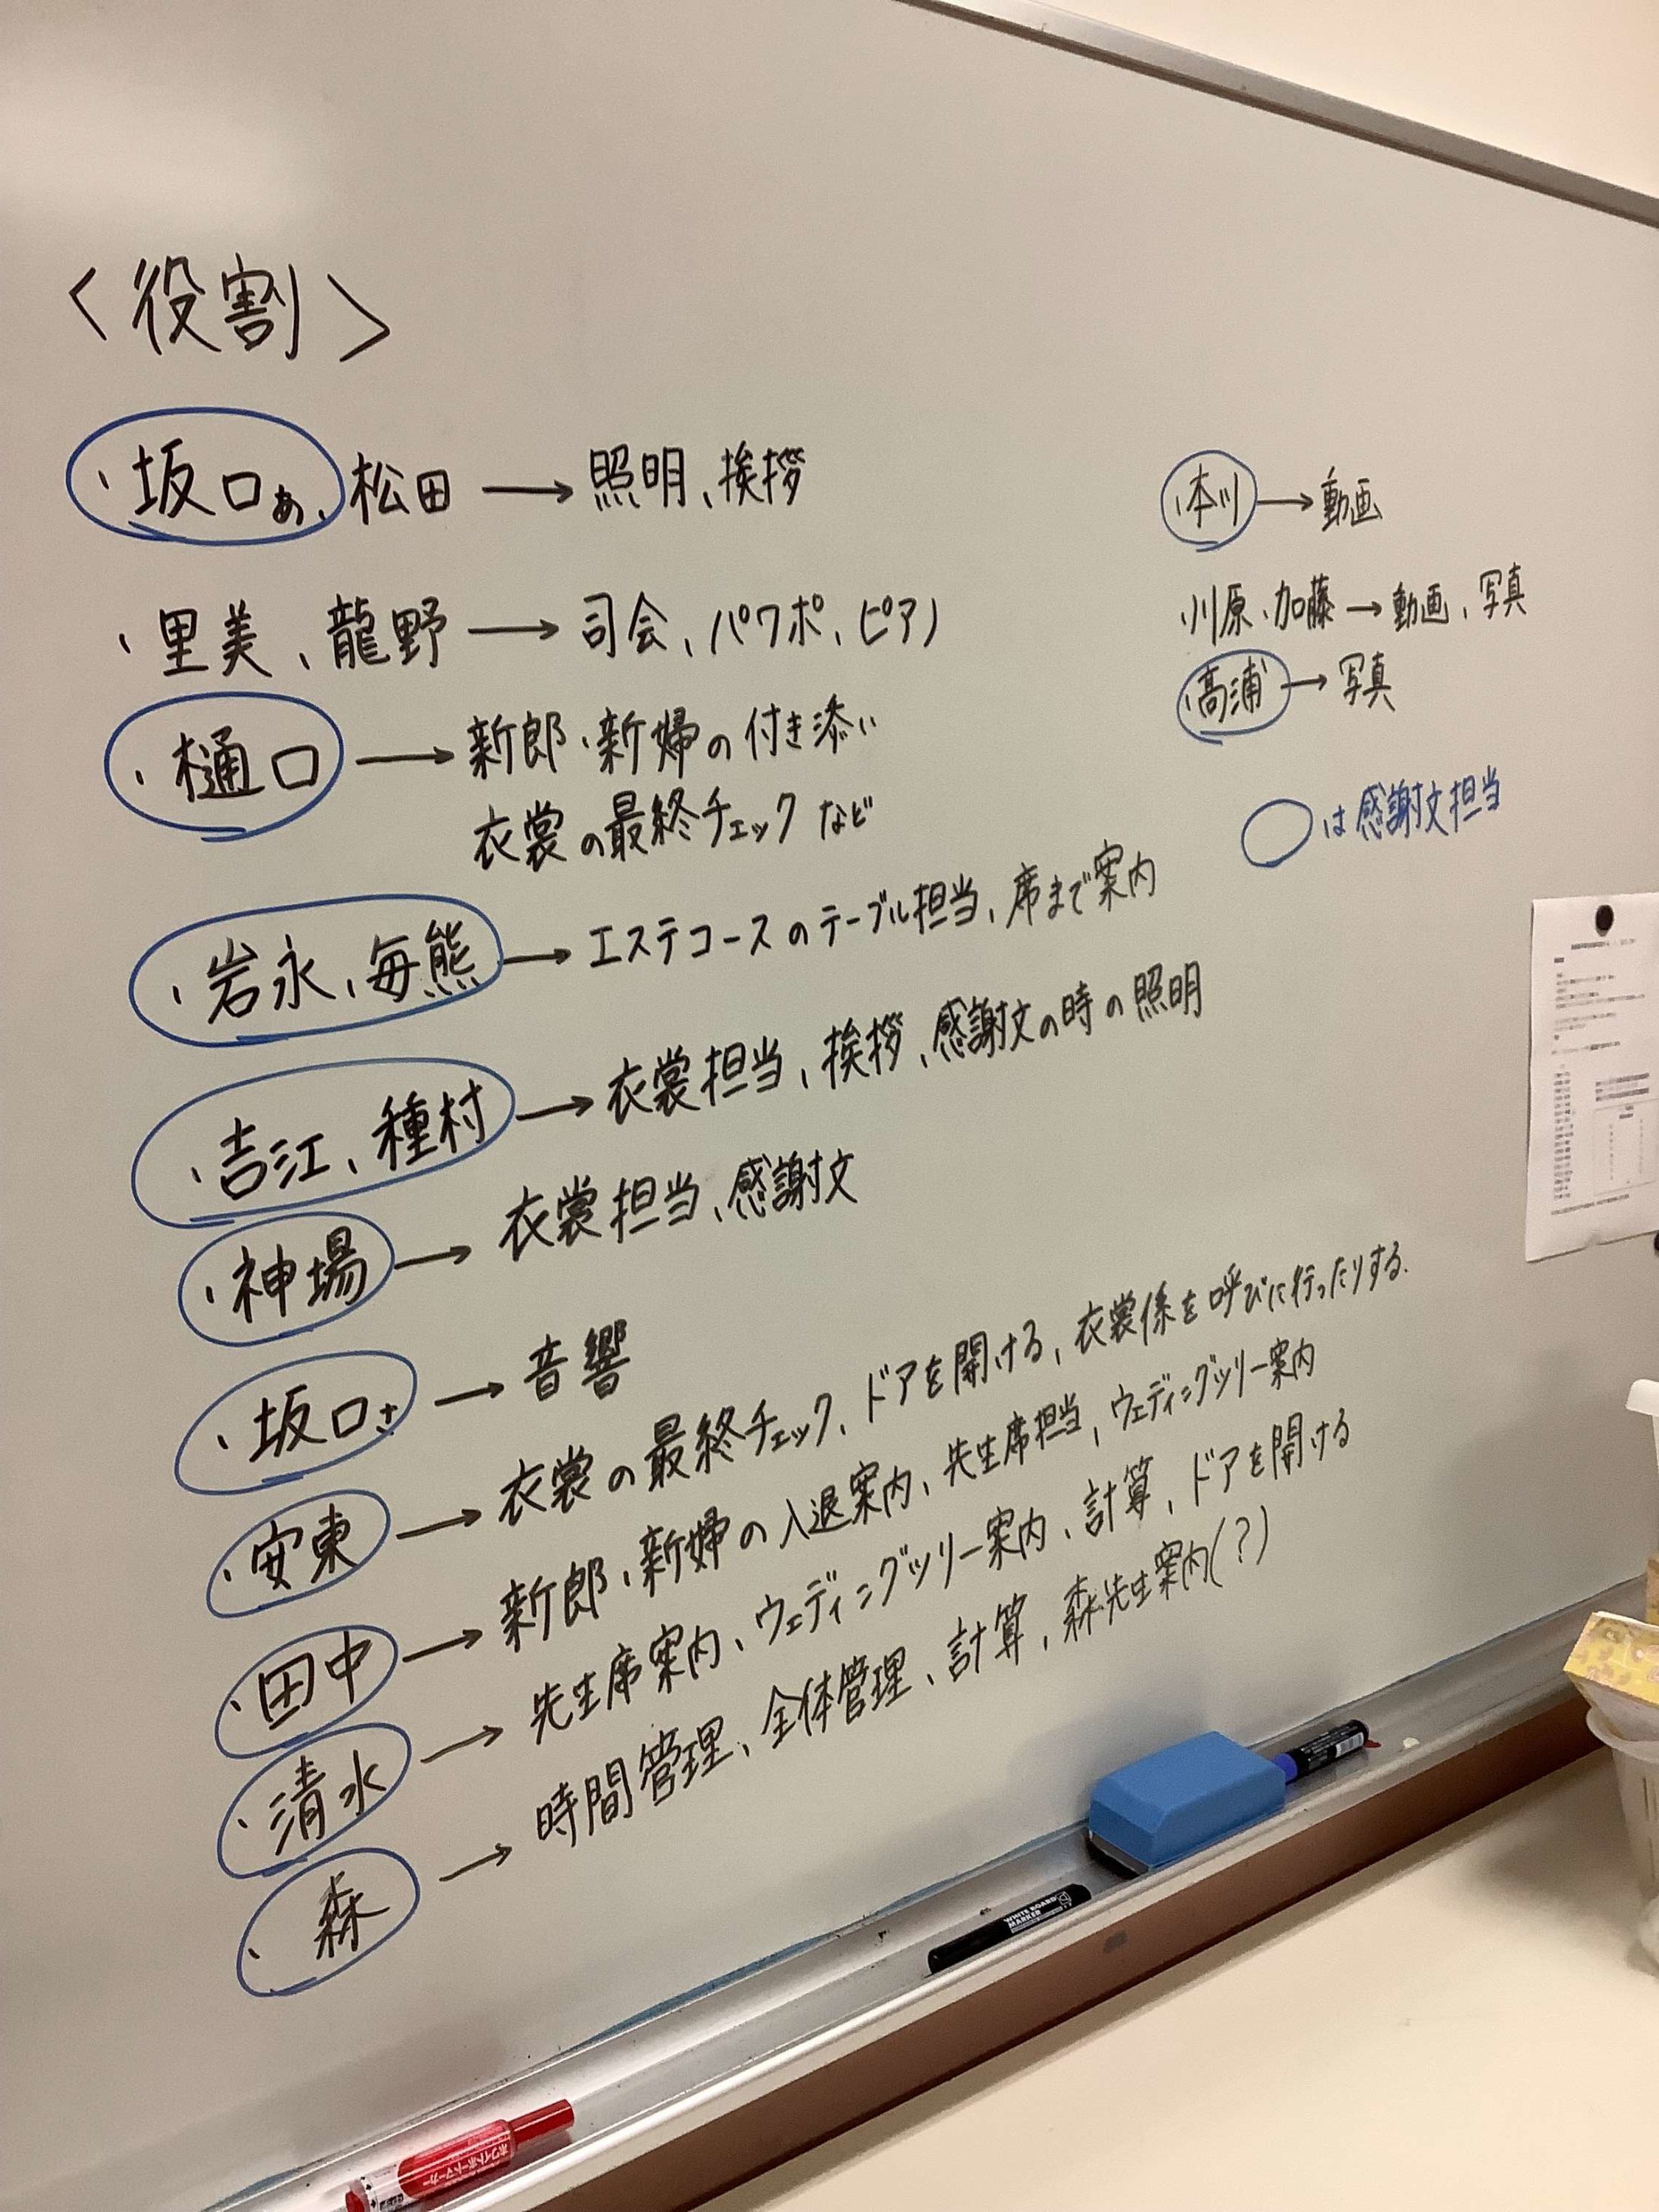 〈役割〉
・坂口ぁ、松田→照明、挨拶
・里美、龍野→司会、パワポ、ピアノ
・樋口→新郎・新婦の付き添い
衣裳の最終チェックなど
・岩永、毎熊→エステコースのテーブル担当、席まで案内
・吉江、種村→衣裳担当、挨拶、感謝文の時の照明
・神場→衣裳担当、感謝文
・坂口さ→音響
・安東→衣裳の最終チェック、ドアを開ける、衣裳係を呼びに行ったりする.
・田中→新郎、新婦の入退案内、先生席担当、ウェディングツリー案内
・清水→先生席案内、ウェディングツリー案内、計算、ドアを開ける
・森→時間管理、全体管理、計算、森先生案内(?)
・本川→動画
・川原、加藤→動画、写真
・髙浦→写真
○は感謝文担当
WHITE BOARD
MARKER
ホワイトボードマーカー